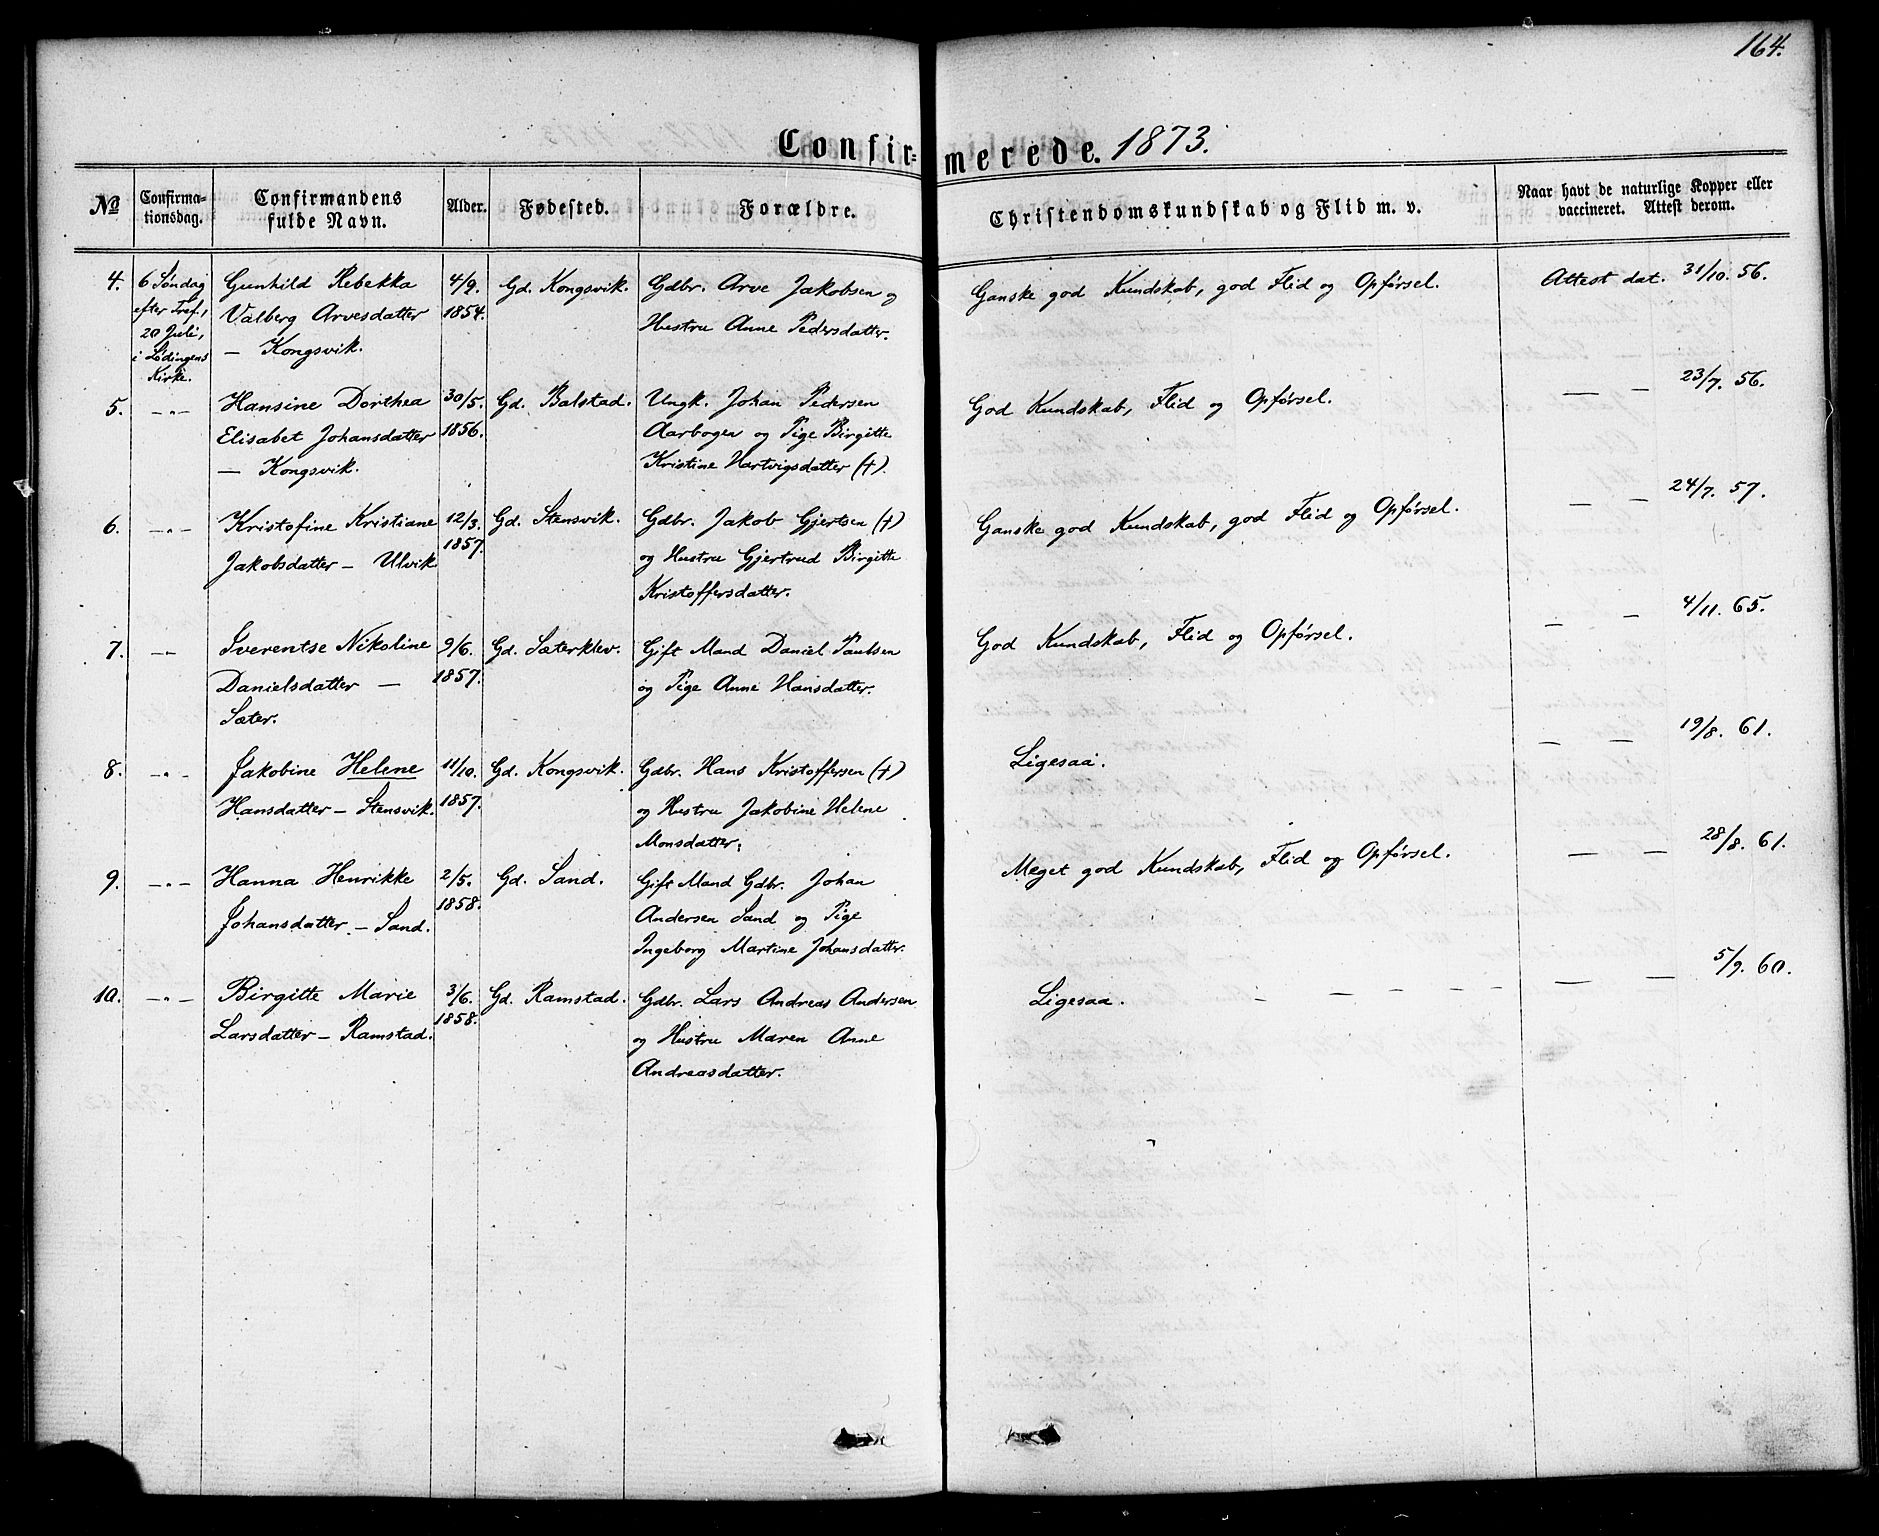 164.
Confirmerede. 1873.
№
Confirmationsdag.
Confirmandens fulde Navn.
Alder.
Fødested.
Forældre.
Christendomskundskab og Flid m. v.
Naar havt de naturlige Kopper eller vaccineret. Attest derom.
4.
6 Søndag
efter Tref.,
20 Juli,
i Lødingens
Kirke.
Gunhild Rebekka
Valberg Arvesdatter
— Kongsvik.
4/9.
1854.
Gd. Kongsvik.
Gdbr. Arve Jakobsen og
Hustru Anne Pedersdatter.
Ganske god Kundskab, god Flid og Opførsel.
Attest dat. 31/10. 56.
5.
— „ —
Hansine Dorthea
Elisabet Johansdatter
— Kongsvik.
30/5.
1856.
Gd. Balstad.
Ungk. Johan Pedersen
Aarbogen og Pige Birgitte
Kristine Hartvigsdatter (†).
God Kundskab, Flid og Opførsel.
— — 23/7. 56.
6.
— „ —
Kristofine Kristiane
Jakobsdatter — Ulvik
12/3.
1857.
Gd. Stensvik.
Gdbr. Jakob Gjertsen (†)
og Hustru Gjertrud Birgitte
Kristoffersdatter.
Ganske god Kundskab, god Flid og Opførsel.
— — 24/7. 57.
7.
— —
Sverentse Nikoline
Danielsdatter —
Sæter.
9/6.
1857.
Gd. Sæterklev.
Gift Mand Daniel Paulsen
og Pige Anne Hansdatter.
God Kundskab, Flid og Opførsel.
— — 4/11. 65.
8.
— „ —
Jakobine Helene
Hansdatter — Stensvik.
11/10.
1857.
Gd. Kongsvik.
Gdbr. Hans Kristoffersen (†)
og Hustru Jakobine Helene
Monsdatter.
Ligesaa.
— — 19/8. 61.
9.
— „ —
Hanna Henrikke
Johansdatter — Sand.
2/5.
1858.
Gd. Sand.
Gift Mand Gdbr. Johan
Andersen Sand og Pige
Ingeborg Martine Johansdatter.
Meget god Kundskab, Flid og Opførsel.
— — 28/8. 61.
10.
— „ —
Birgitte Marie
Larsdatter — Ramstad.
3/6.
1858.
Gd. Ramstad.
Gdbr. Lars Andreas Andersen
og Hustru Maren Anne
Andreasdatter.
Ligesaa.
— — 5/9. 60.